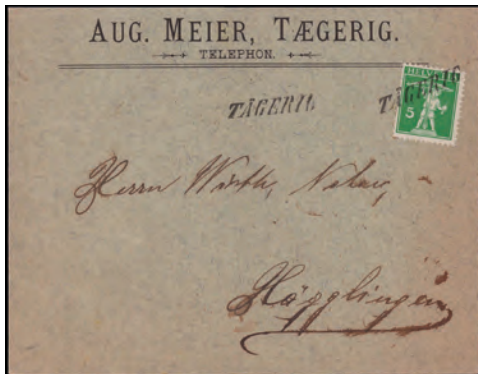 AUG. MEIER, TÆGERIG.
TELEPHON.
TÄGERIG
TÄGERIG
HELVETIA
5
Herrn Wirth,
Hägglingen